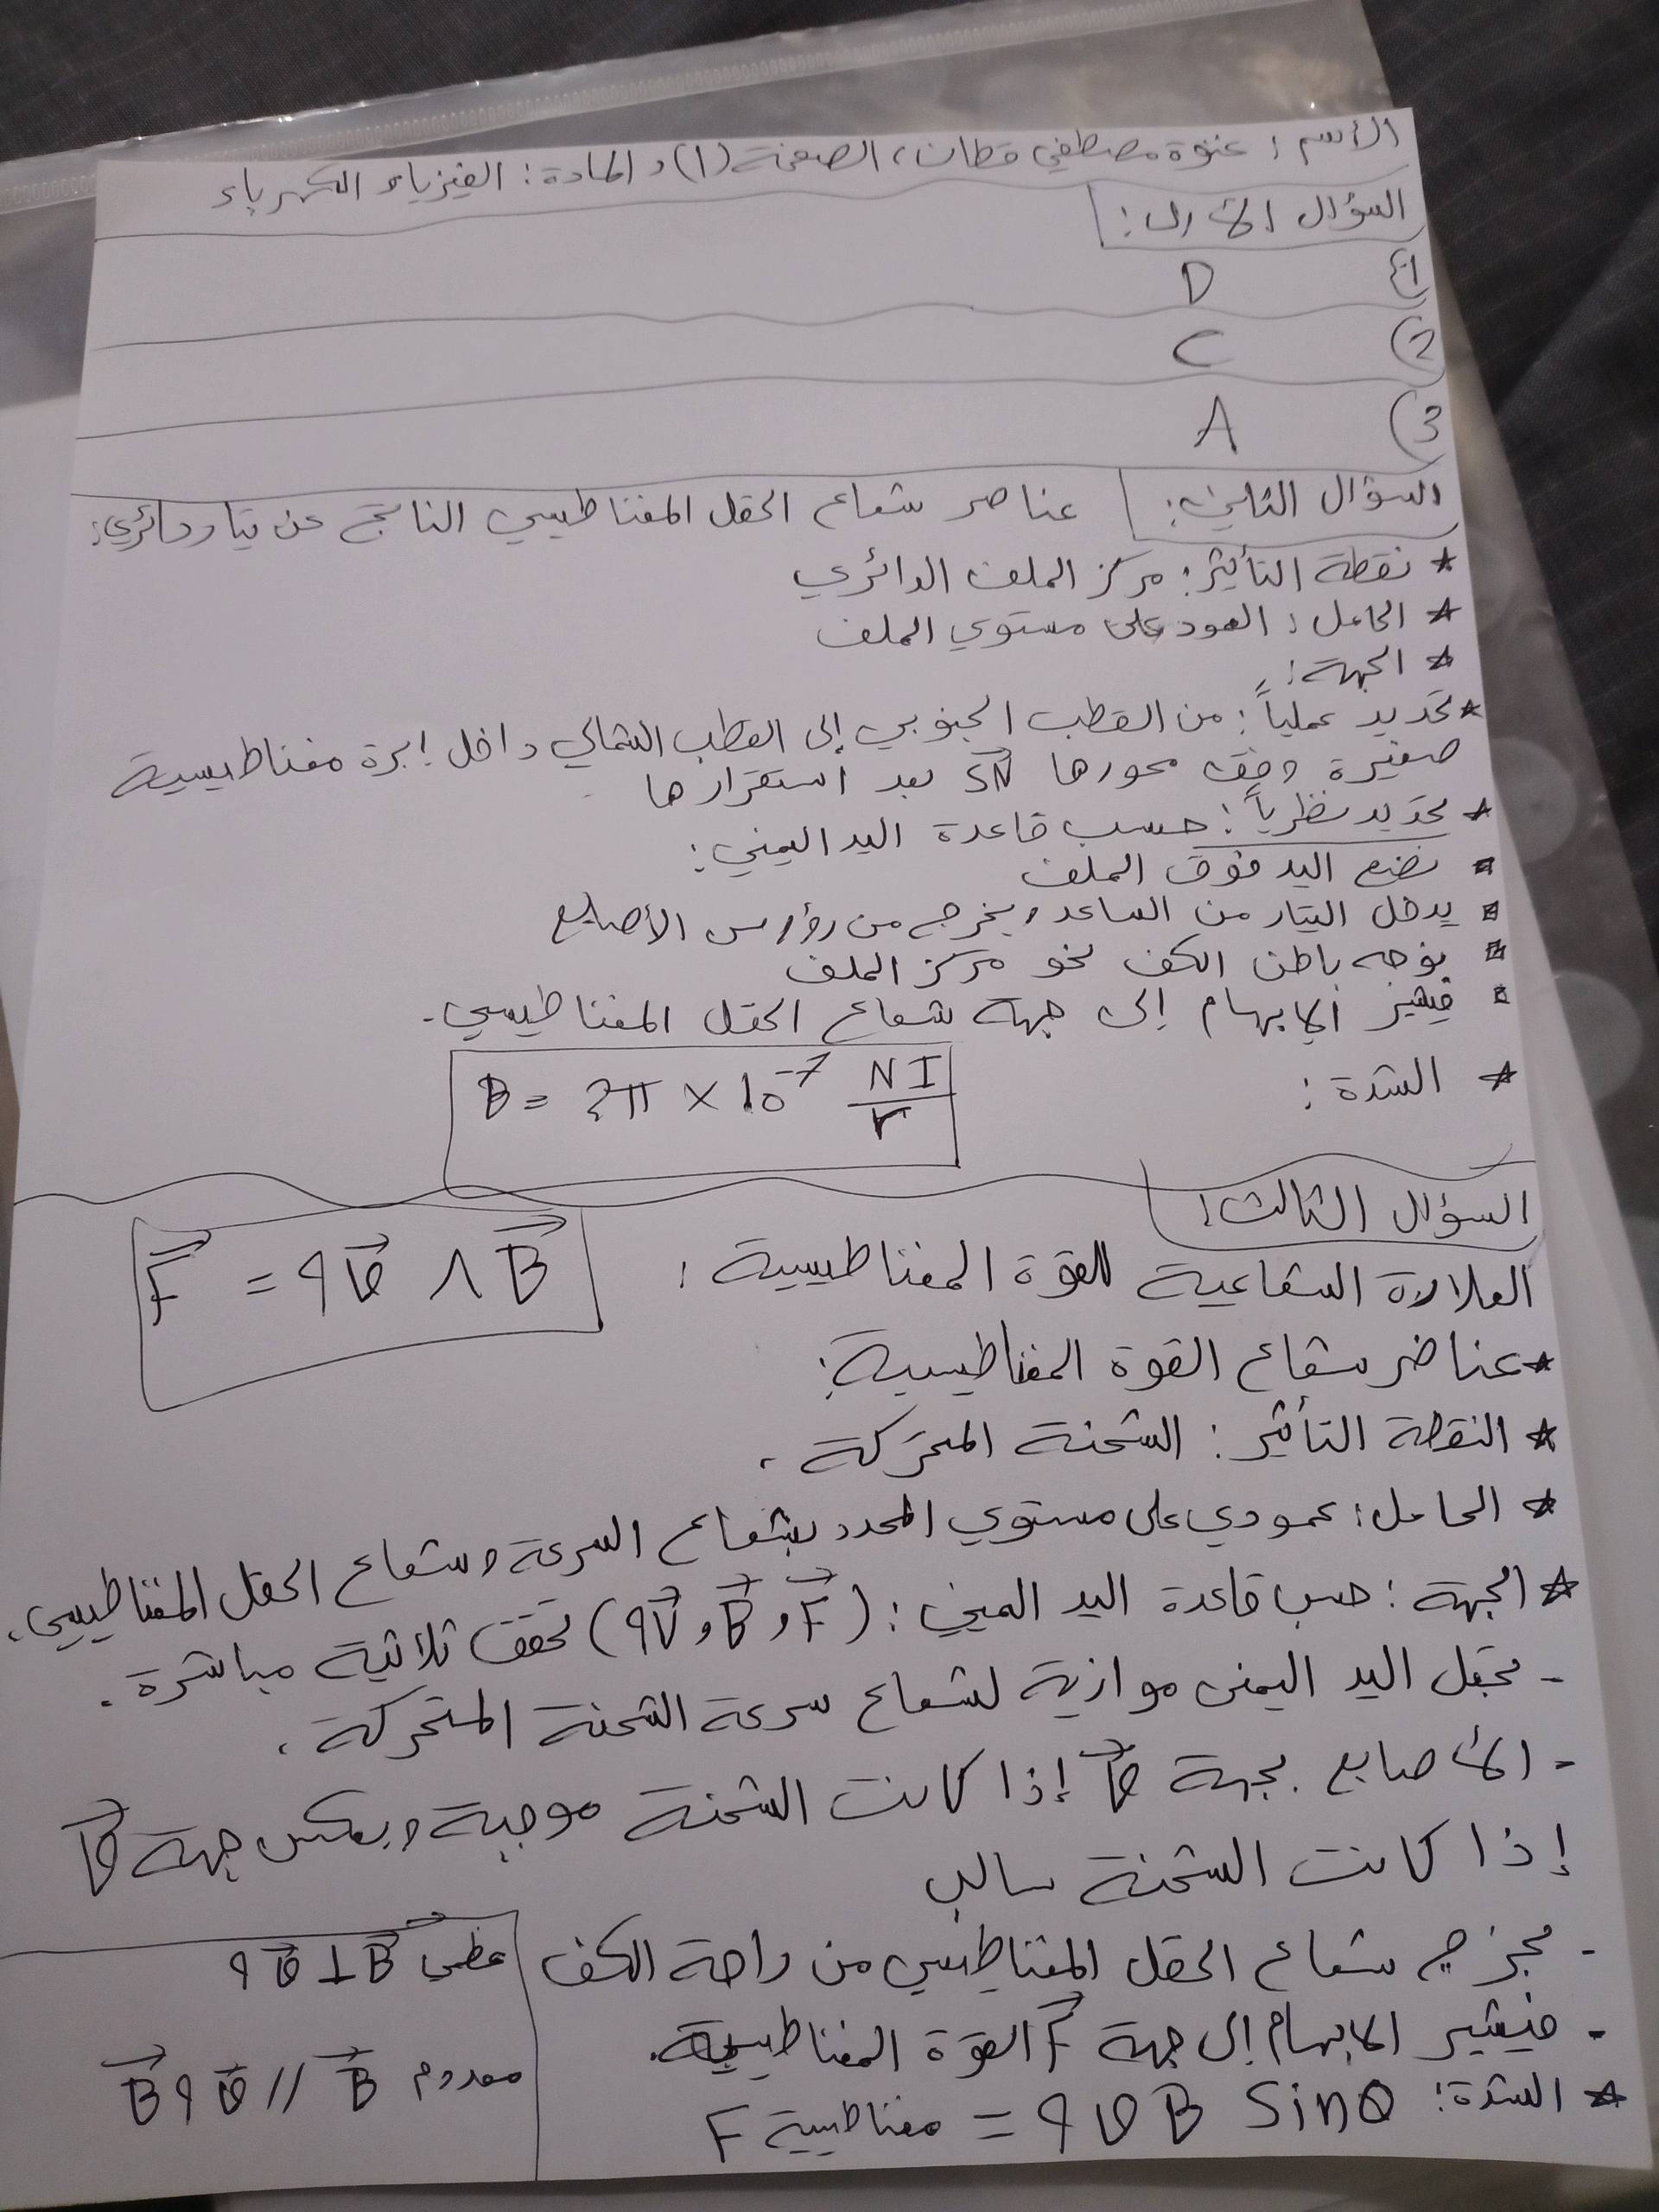 الأسم : غنوة مصطفى قطان ، الصفحة (1) ، المادة : الفيزياء الكهرباء
السؤال الأول :
(1 D
(2 C
(3 A
السؤال الثاني : عناصر شعاع الحقل المغناطيسي الناتج عن تيار دائري :
* نقطة التأثير : مركز الملف الدائري
* الحامل : العمود على مستوي الملف
* الجهة :
* تحديد عملياً : من القطب الجنوبي إلى القطب الشمالي داخل إبرة مغناطيسية
صغيرة وفق محورها SN بعد استقرارها
* تحديد نظرياً : حسب قاعدة اليد اليمنى :
▪ نضع اليد فوق الملف
▪ يدخل التيار من الساعد ويخرج من رؤوس الأصابع
▪ يوجه باطن الكف نحو مركز الملف
▪ فيشير الإبهام إلى جهة شعاع الحقل المغناطيسي .
* الشدة : B = 2π × 10⁻⁷ NI/r
السؤال الثالث :
العلاقة الشعاعية للقوة المغناطيسية : F⃗ = qv⃗ ∧ B⃗
* عناصر شعاع القوة المغناطيسية :
* النقطة التأثير : الشحنة المتحركة .
* الحامل : عمودي على مستوي المحدد بشعاع السرعة وشعاع الحقل المغناطيسي .
* الجهة : حسب قاعدة اليد اليمنى : (qv⃗ , B⃗ , F⃗) تحقق ثلاثية مباشرة .
- نجعل اليد اليمنى موازية لشعاع سرعة الشحنة المتحركة .
- الأصابع بجهة v⃗ إذا كانت الشحنة موجبة وبعكس جهة v⃗
إذا كانت الشحنة سالب
- يخرج شعاع الحقل المغناطيسي من راحة الكف
- فيشير الإبهام إلى جهة F⃗ القوة المغناطيسية .
* الشدة : F مغناطيسية = qvB sinθ
عظمى qv⃗ ⊥ B⃗
معدوم B⃗ qv⃗ // B⃗